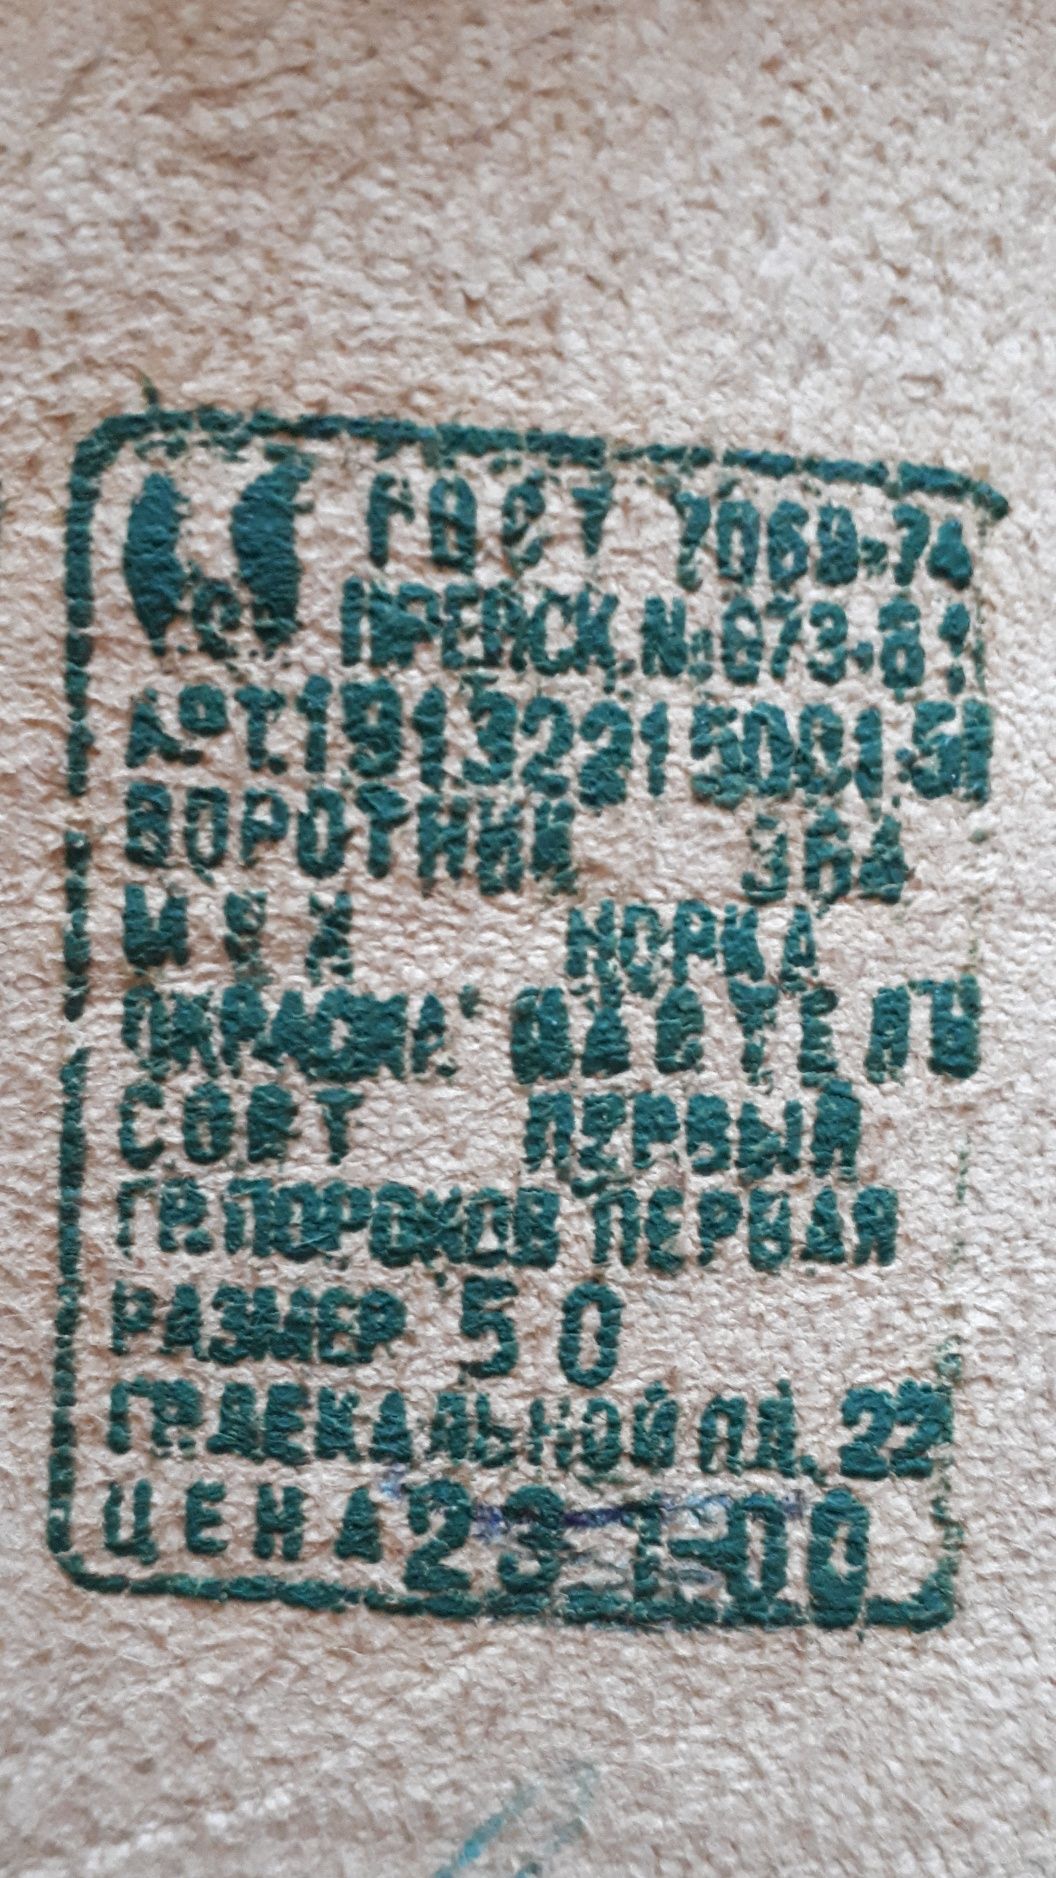 ГОСТ 7069-74
ПРЕЙСК. № 673-81
АРТ.
ВОРОТНИК 364
МЕХ НОРКА
ОКРАСКА ПАСТЕЛЬ
СОРТ ПЕРВЫЙ
ГР.ПОРОКОВ ПЕРВАЯ
РАЗМЕР 50
ГР.ДЕКАЛЬНОЙ ПЛ. 22
ЦЕНА 231-00